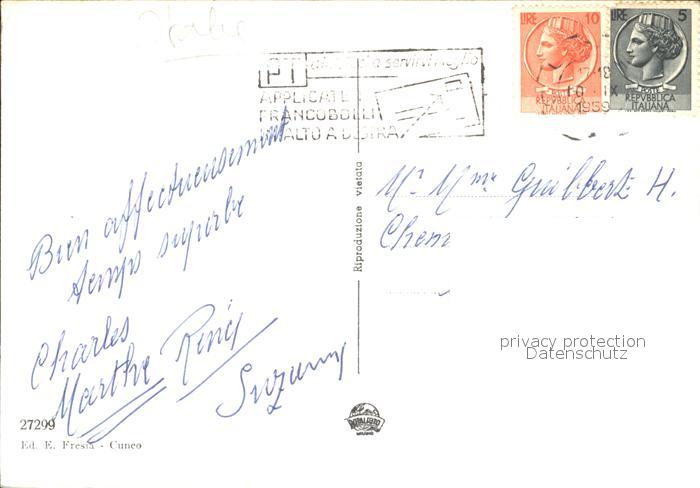 Italie
LIRE 10
LIRE 5
POSTE
REPVBBLICA
ITALIANA
POSTE
REPVBBLICA
ITALIANA
17-18
10 IX
1959
PT
a servirvi meglio
APPLICATE
FRANCOBOLLI
IN ALTO A DESTRA
Bien affectueusement
temps superbe
Charles
Marthe René
Suzanne
Riproduzione vietata
Mr Mme Guilbert H.
Chem
privacy protection
Datenschutz
27299
Ed. E. Fresia - Cuneo
ROTALFOTO
MILANO